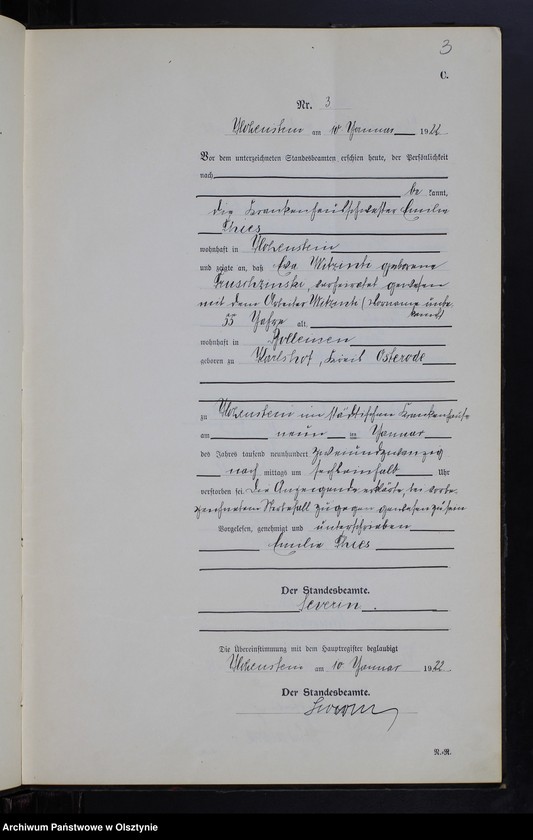 3
C.
Nr. 3
Hohenstein am 10 Januar 1922
Vor dem unterzeichneten Standesbeamten erschien heute, der Persönlichkeit
nach
be kannt,
die Krankenhausschwester Emilie
Thies
wohnhaft in Hohenstein
und zeigte an, daß Eva geborene
verheiratet gewesen
mit dem Arbeiter (Vorname unbe-
kannt)
55 Jahre alt,
wohnhaft in
geboren zu Karlshof, Kreis Osterode
zu Hohenstein im städtischen Krankenhause
am neun ten Januar
des Jahres tausend neunhundert zweiundzwanzig
nach mittags um sechseinhalb Uhr
verstorben sei. Die Anzeigende erklärte, bei vorbe-
zeichnetem Sterbefall zugegen gewesen zu sein
Vorgelesen, genehmigt und unterschrieben
Emilie Thies
Der Standesbeamte.
Severin.
Die Übereinstimmung mit dem Hauptregister beglaubigt
Hohenstein am 10 Januar 1922
Der Standesbeamte.
Severin
R.-R.
Archiwum Państwowe w Olsztynie